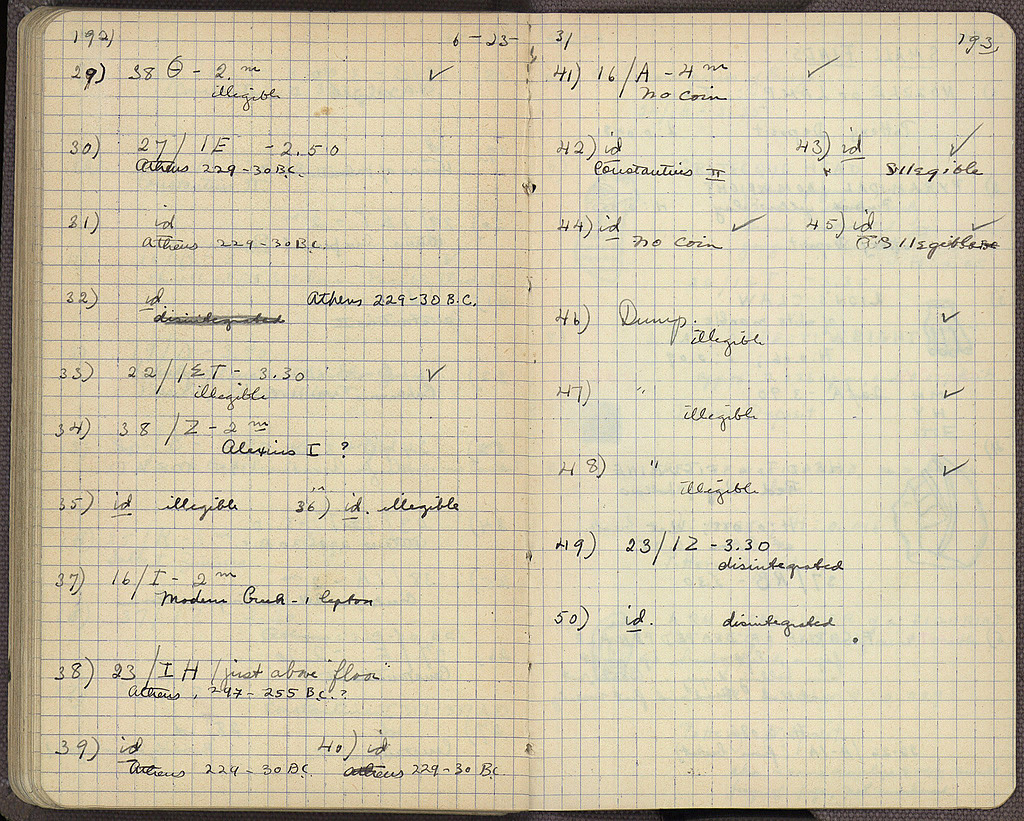 192)
6-23-
29) 38 Θ - 2.m ✓
illegible
30) 27/IE - 2.50
Athens 229-30 B.C.
31) id
Athens 229-30 B.C.
32) id Athens 229-30 B.C.
disintegrated
33) 22/IΣT - 3.30 ✓
illegible
34) 38/Z - 2m
Alexius I ?
35) id illegible 36) id. illegible
37) 16/I - 2m
Modern Greek - 1 lepton
38) 23/IH/just above "floor"
Athens, 297-255 B.C.?
39) id 40) id
Athens 229-30 B.C. Athens 229-30 B.C.
31
193
41) 16/A - 4m ✓
no coin
42) id 43) id ✓
Constantius II Illegible
44) id ✓ 45) id ✓
no coin Illegible
46) Dump. ✓
illegible
47) " ✓
illegible
48) " ✓
illegible
49) 23/IZ - 3.30
disintegrated
50) id. disintegrated